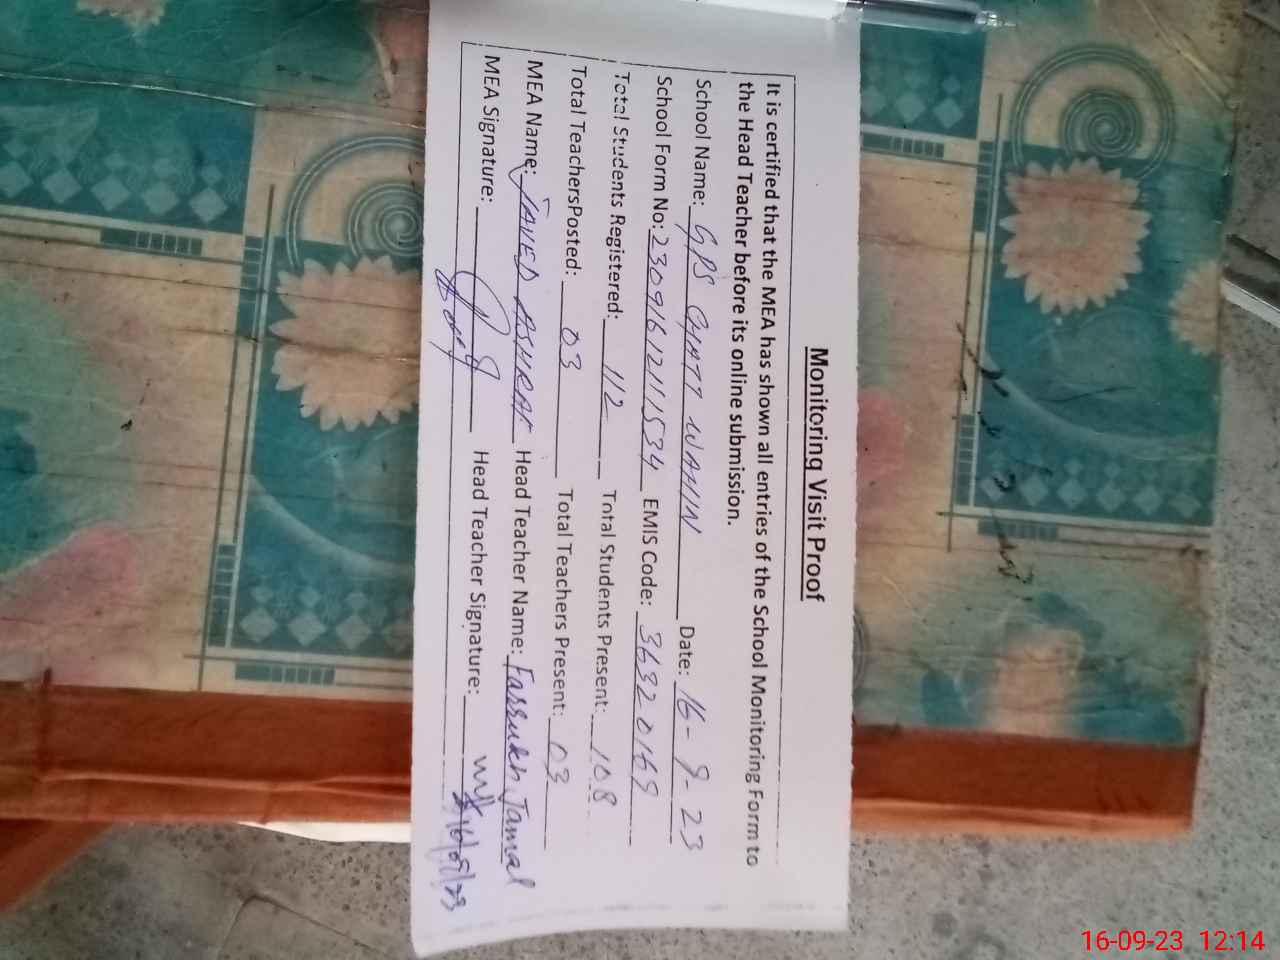 Monitoring Visit Proof
It is certified that the MEA has shown all entries of the School Monitoring Form to
the Head Teacher before its online submission.
School Name: GPS CHATT WAHIN Date: 16-9-23
School Form No: 2309161211534 EMIS Code: 36320169
Total Students Registered: 112 Total Students Present: 108
Total TeachersPosted: 03 Total Teachers Present: 03
MEA Name: JAVED ASHRAF Head Teacher Name: Farrukh Jamal
MEA Signature: Head Teacher Signature:
16/09/23
16-09-23 12:14